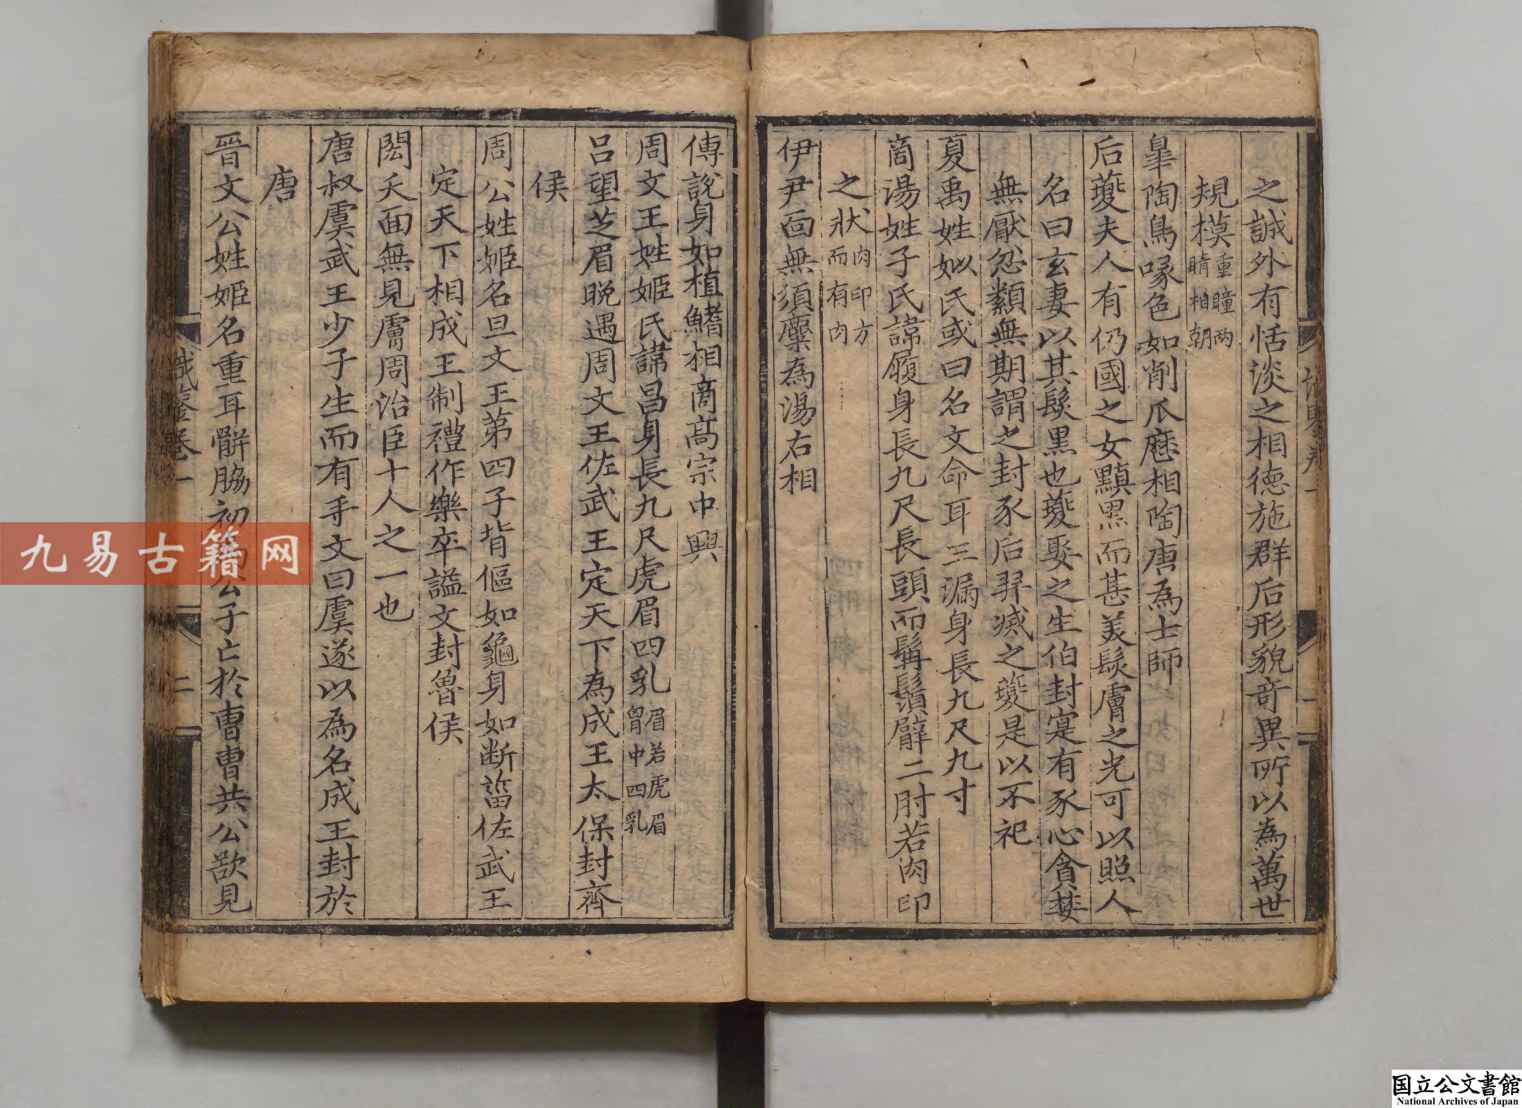 之誠外有恬淡之相德施群后形貌竒異所以為萬世
規模重瞳两睛相朝
臯陶鳥喙色如削瓜歷相陶唐為士師
后夔夫人有仍國之女黰黒而甚美髮膚之光可以照人
名曰玄妻以其髮黒也夔娶之生伯封寔有豕心貪婪
無厭忿纇無期謂之封豕后羿滅之夔是以不祀
夏禹姓姒氏或曰名文命耳三漏身長九尺九寸
商湯姓子氏諱履身長九尺長頭而髯鬚臂二肘若肉印
之狀肉印方而有肉
伊尹面無須麋為湯右相
傅說身如植鰭相商髙宗中興
周文王姓姬氏諱昌身長九尺虎眉四乳眉若虎眉胷中四乳
吕望芝眉晚遇周文王佐武王定天下為成王太保封齊
侯
周公姓姬名旦文王第四子背傴如龜身如断菑佐武王
定天下相成王制禮作樂卒謚文封魯侯
閎夭面無見膚周治臣十人之一也
唐叔虞武王少子生而有手文曰虞遂以為名成王封於
唐
晉文公姓姬名重耳骿脇初為公子亡於曹曹共公欲見
識鑒卷一
二
九易古籍网
国立公文書館
National Archives of Japan